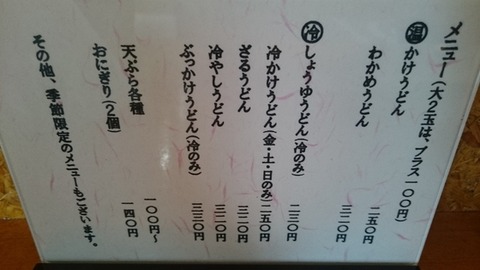 メニュー(大2玉は、プラス一〇〇円)
温 かけうどん 二五〇円
わかめうどん 三二〇円
冷 しょうゆうどん(冷のみ) 二三〇円
冷かけうどん(金・土・日のみ) 二五〇円
ざるうどん 三二〇円
冷やしうどん 三二〇円
ぶっかけうどん(冷のみ) 三三〇円
天ぷら各種 一〇〇円～
おにぎり(2個) 一四〇円
その他、季節限定のメニューもございます。